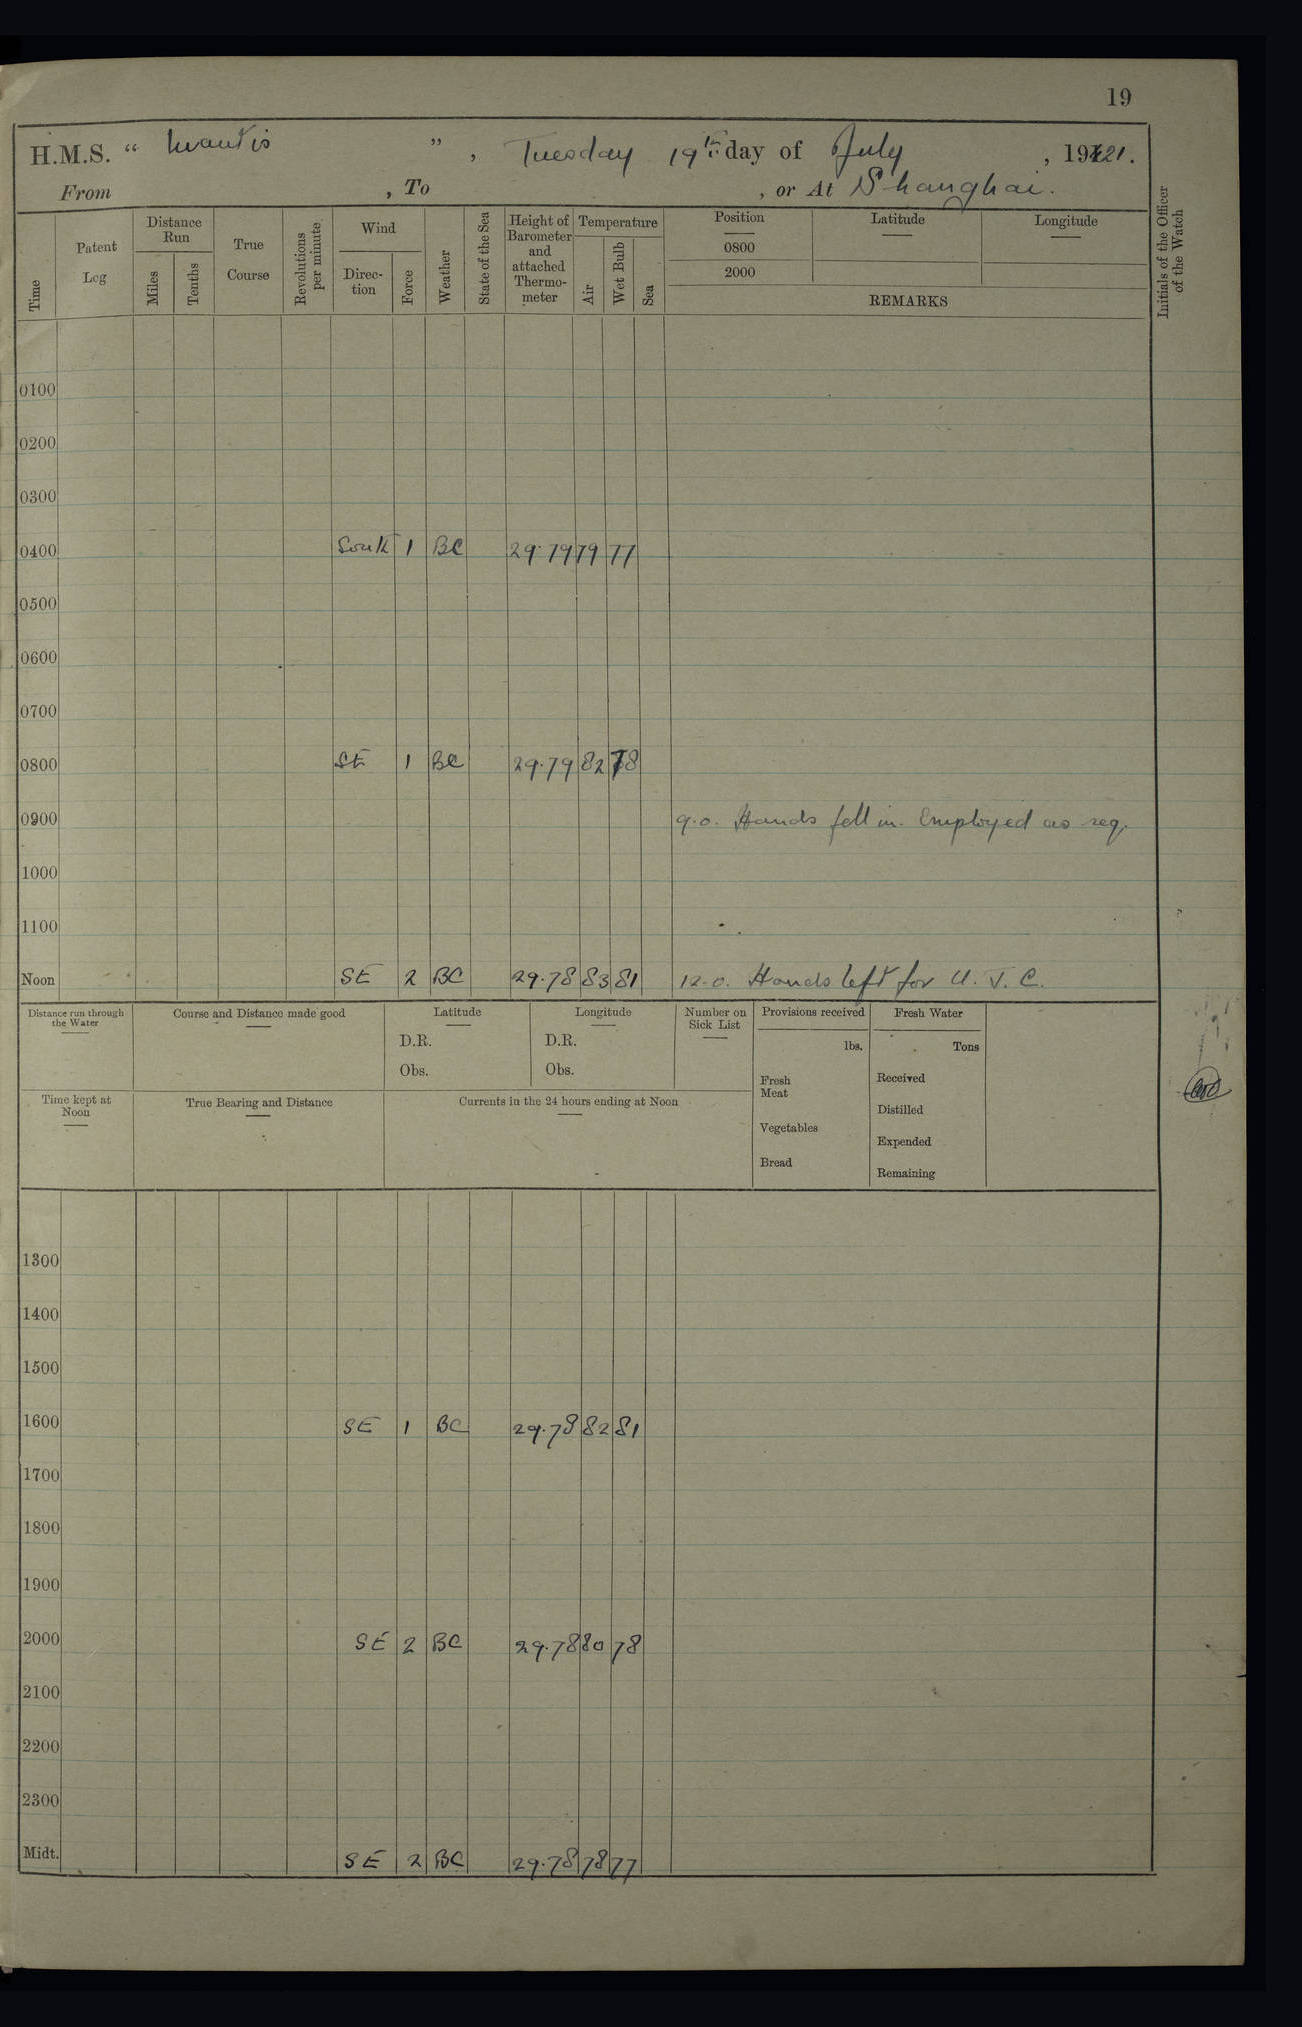 19
H.M.S. " Mantis ", Tuesday 19th day of July, 1921.
From , To , or At Shanghai.
Time
Patent Log
Distance Run
Miles
Tenths
True Course
Revolutions per minute
Wind
Direction
Force
Weather
State of the Sea
Height of Barometer and attached Thermometer
Temperature
Air
Wet Bulb
Sea
Position
0800
2000
Latitude
Longitude
REMARKS
Initials of the Officer of the Watch
0100
0200
0300
0400 South 1 BC 29.79 79 77
0500
0600
0700
0800 SE 1 BC 29.79 82 78
0900 9.0. Hands fell in. Employed as req.
1000
1100
Noon SE 2 BC 29.78 83 81 12.0. Hands left for U. J. C.
Distance run through the Water
Course and Distance made good
Latitude
D.R.
Obs.
Longitude
D.R.
Obs.
Number on Sick List
Provisions received
lbs.
Fresh Meat
Vegetables
Bread
Fresh Water
Tons
Received
Distilled
Expended
Remaining
Time kept at Noon
True Bearing and Distance
Currents in the 24 hours ending at Noon
1300
1400
1500
1600 SE 1 BC 29.78 82 81
1700
1800
1900
2000 SE 2 BC 29.78 80 78
2100
2200
2300
Midt. SE 2 BC 29.78 78 77